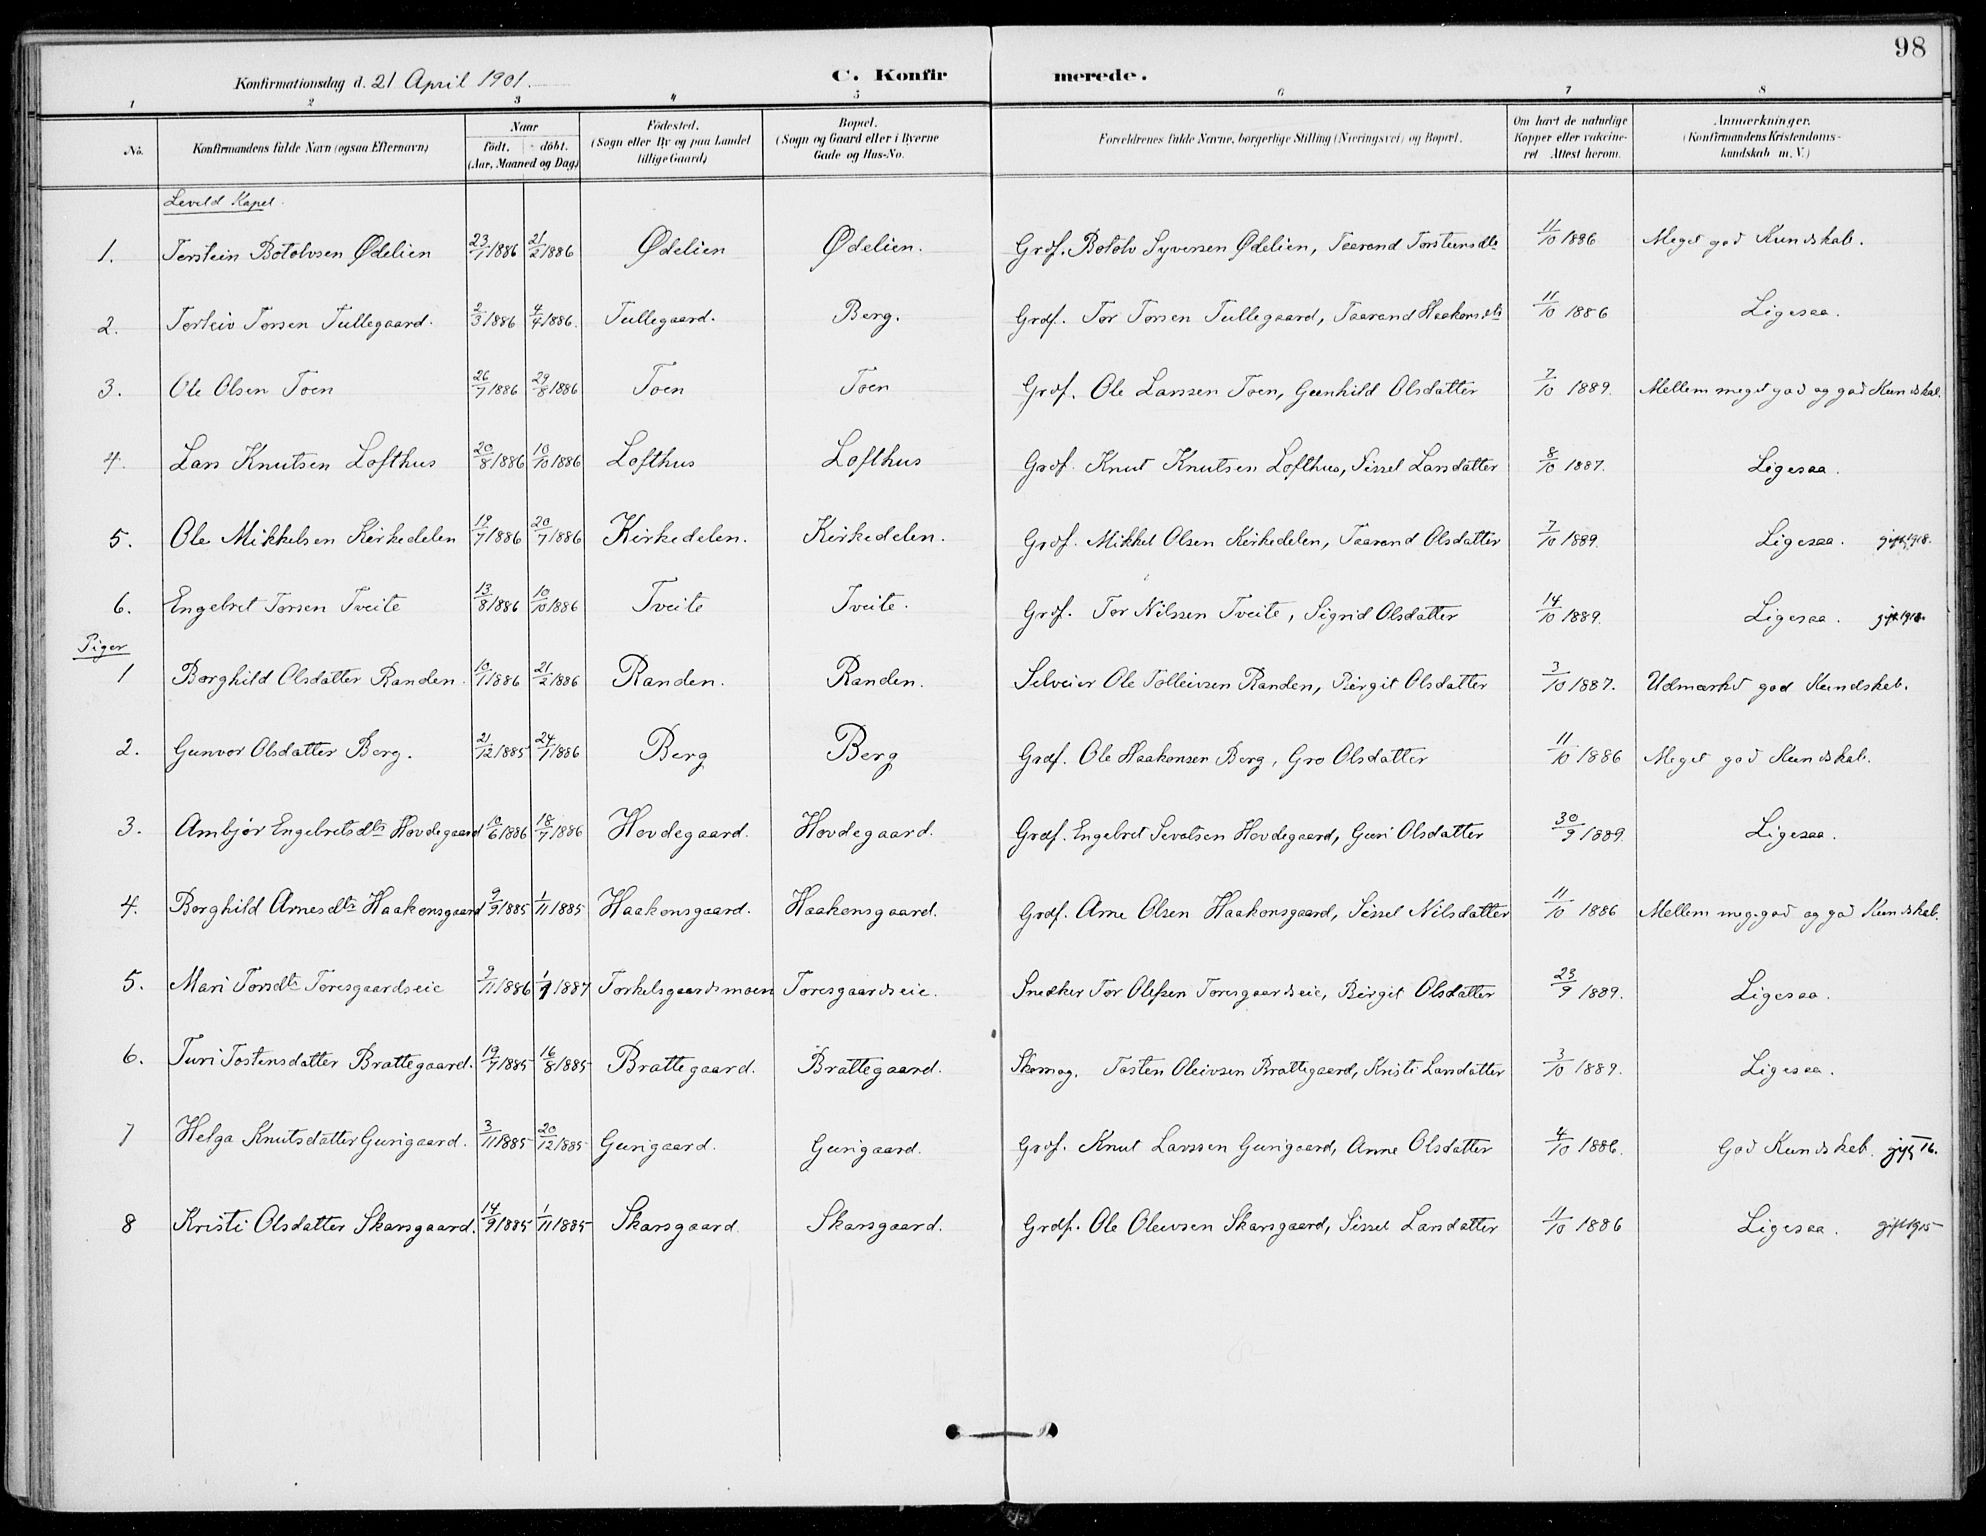 98
Konfirmationsdag d. 21 April 1901. C. Konfirmerede.
1 2 3 4 5 6 7 8
No. Konfirmandens fulde Navn (ogsaa Efternavn) Naar født. døbt. (Aar, Maaned og Dag) Fødested. (Sogn eller By og paa Landet tillige Gaard) Bopæl. (Sogn og Gaard eller i Byerne Gade og Hus-No. Forældrenes fulde Navne, borgerlige Stilling (Næringsvei) og Bopæl. Om havt de naturlige Kopper eller vaccineret Attest herom. Anmærkninger. (Konfirmandens Kristendomskundskab m. V.)
Leveld Kapel.
1. Torstein Botolvsen Ødelien 23/1 1886 21/2 1886 Ødelien Ødelien. Grdf. Botolv Syversen Ødelien, Taarand Torsteinsdtr 11/10 1886 Meget god Kundskab.
2. Torleiv Torsen Tullegaard. 2/3 1886 4/4 1886. Tullegaard. Berg. Grdf. Tor Torsen Tullegaard, Taarand Haakonsdtr 11/10 1886 Ligesaa.
3. Ole Olsen Toen 26/7 1886 29/8 1886 Toen Toen Grdf. Ole Larssen Toen, Gunhild Olsdatter 7/10 1889. Mellem meget god og god Kundskab.
4. Lars Knutsen Lofthus 20/8 1886 10/10 1886 Lofthus Lofthus Grdf. Knut Knutsen Lofthus, Sissel Larsdatter 8/10 1887. Ligesaa.
5. Ole Mikkelsen Kirkedelen 19/7 1886 20/7 1886 Kirkedelen. Kirkedelen. Grdf. Mikkel Olsen Kirkedelen, Taarand Olsdatter 7/10 1889. Ligesaa. gift 1918.
6. Engebret Torsen Tveite 13/8 1886 10/10 1886 Tveite Tveite. Grdf. Tor Nilssen Tveite, Sigrid Olsdatter 14/10 1889. Ligesaa.
Piger
1 Borghild Olsdatter Randen. 10/1 1886 21/2 1886 Randen. Randen. Selveier Ole Tolleivsen Randen, Birgit Olsdatter 3/10 1887. Udmærket god Kundskab.
2. Gunvor Olsdatter Berg. 21/12 1885 24/1 1886 Berg Berg Grdf. Ole Haakonsen Berg, Gro Olsdatter 11/10 1886 Meget god Kundskab.
3. Ambjør Engebretsdtr Hovdegaard 10/6 1886 18/7 1886 Hovdegaard. Hovdegaard. Grdf. Engebret Sevatsen Hovdegaard, Guri Olsdatter 30/9 1889. Ligesaa.
4. Borghild Arnesdtr Haakonsgaard 9/9 1885 1/11 1885 Haakonsgaard. Haakonsgaard. Grdf. Arne Olsen Haakonsgaard, Sissel Nilsdatter 11/10 1886 Mellem meg. god og god Kundskab.
5. Mari Torsdtr Toresgaardseie 9/11 1886 1/1 1887 Torkelsgaardsmoen Toresgaardseie. Snedker Tor Olefsen Toresgaardseie, Birgit Olsdatter 23/9 1889. Ligesaa.
6. Turi Tostensdatter Brattegaard. 19/7 1885 16/8 1885 Brattegaard. Brattegaard. Skomag. Tosten Oleivsen Brattegaard, Kristi Larsdatter 3/10 1889. Ligesaa.
7 Helga Knutsdatter Gurigaard. 3/11 1885 20/12 1885 Gurigaard. Gurigaard. Grdf. Knut Larssen Gurigaard, Anne Olsdatter 4/10 1886. God Kundskab.
8 Kristi Olsdatter Skarsgaard. 14/9 1885 1/11 1885 Skarsgaard. Skarsgaard. Grdf. Ole Oleivsen Skarsgaard, Sissel Larsdatter 11/10 1886 Ligesaa. gift 1915